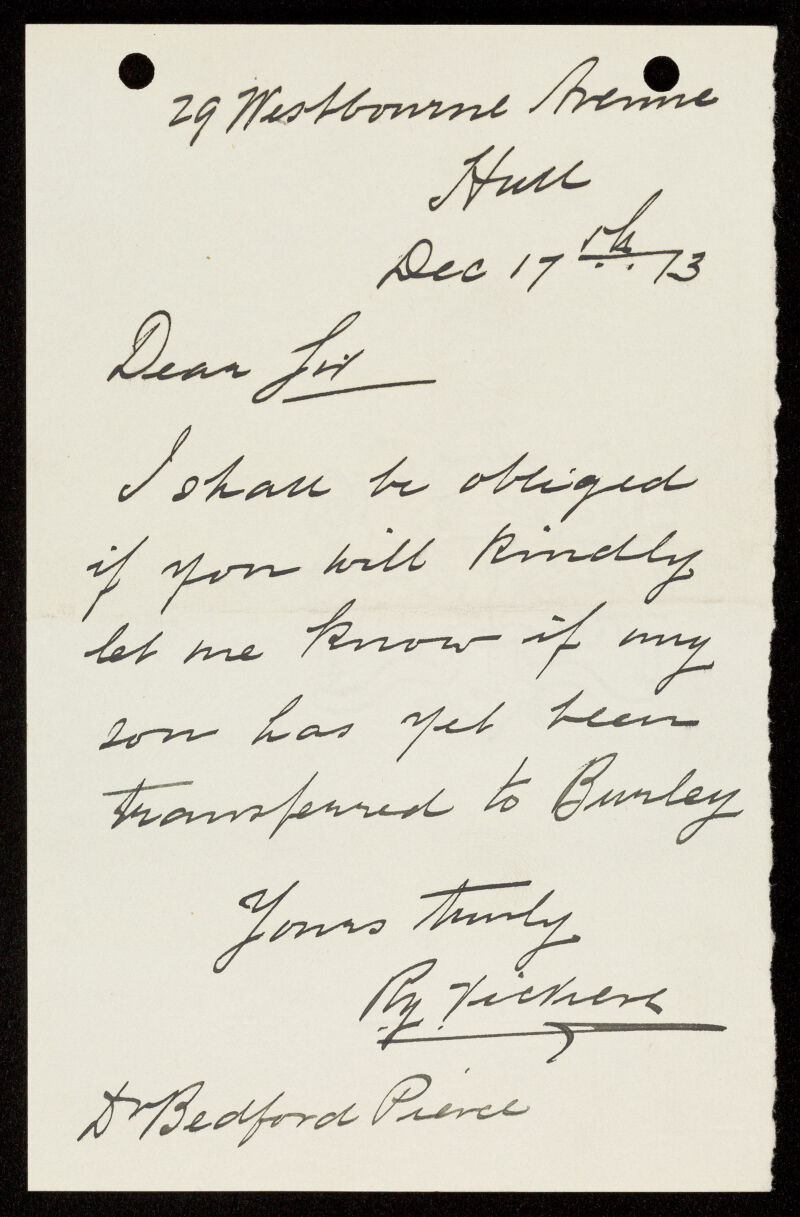 29 Westbourne Avenue
Hull
Dec 17th /13
Dear Sir
I shall be obliged
if you will kindly
let me know if my
son has yet been
transferred to Burley
Yours truly
Vickers
Dr Bedford Pierce